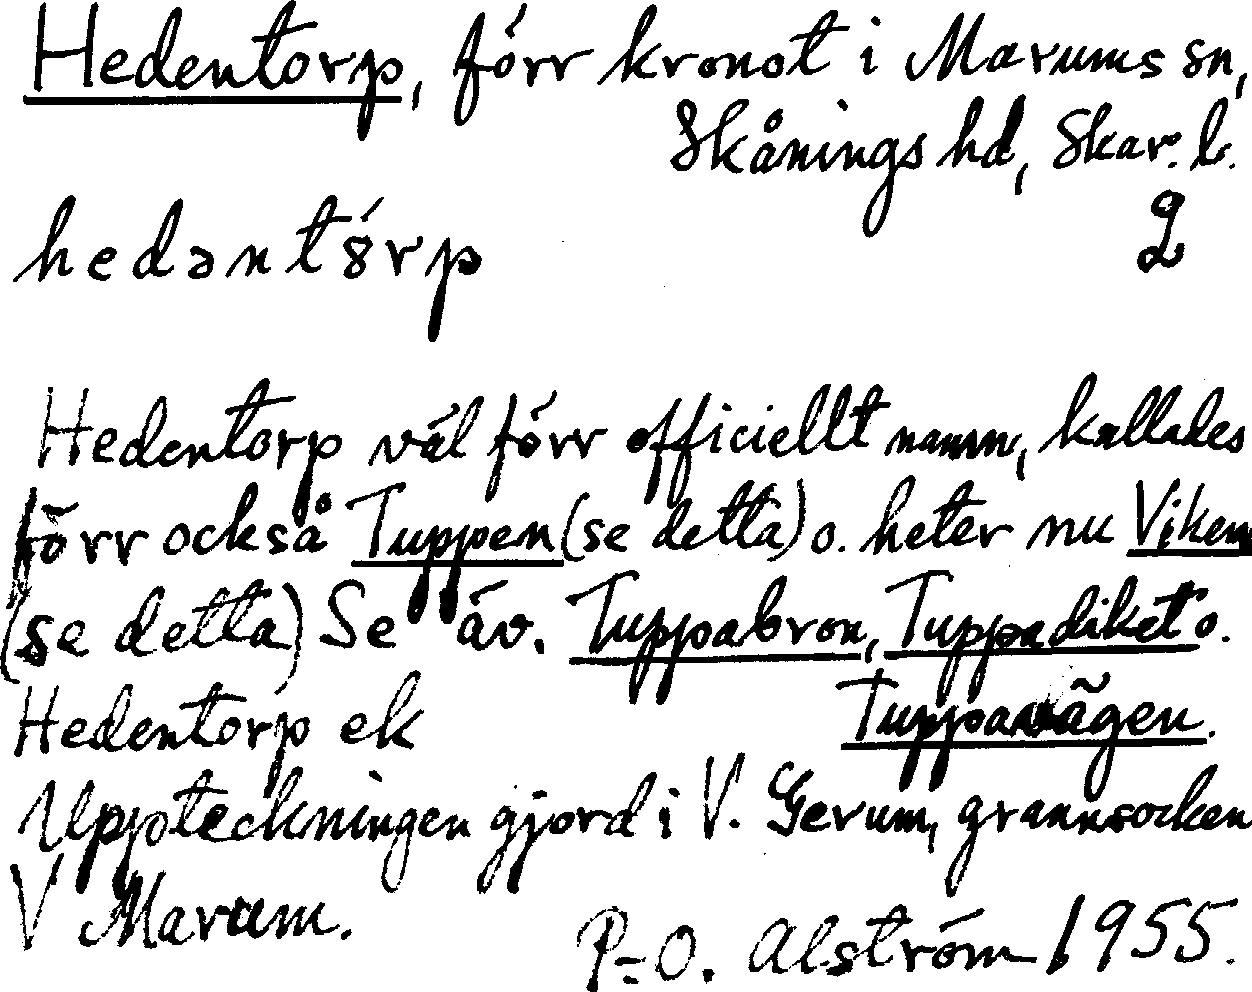 Hedentorp, förr kronot i Marums sn,
Skånings hd, Skar. l.
hedəntórp 2
Hedentorp väl förr officiellt namn, kallades
förr också Tuppen (se detta) o. heter nu Viken
(se detta) Se äv. Tuppabron, Tuppadiket o.
Hedentorp ek Tuppavägen.
Uppteckningen gjord i V. Gerum, grannsocken
V Marum.
P-O. Alström 1955.